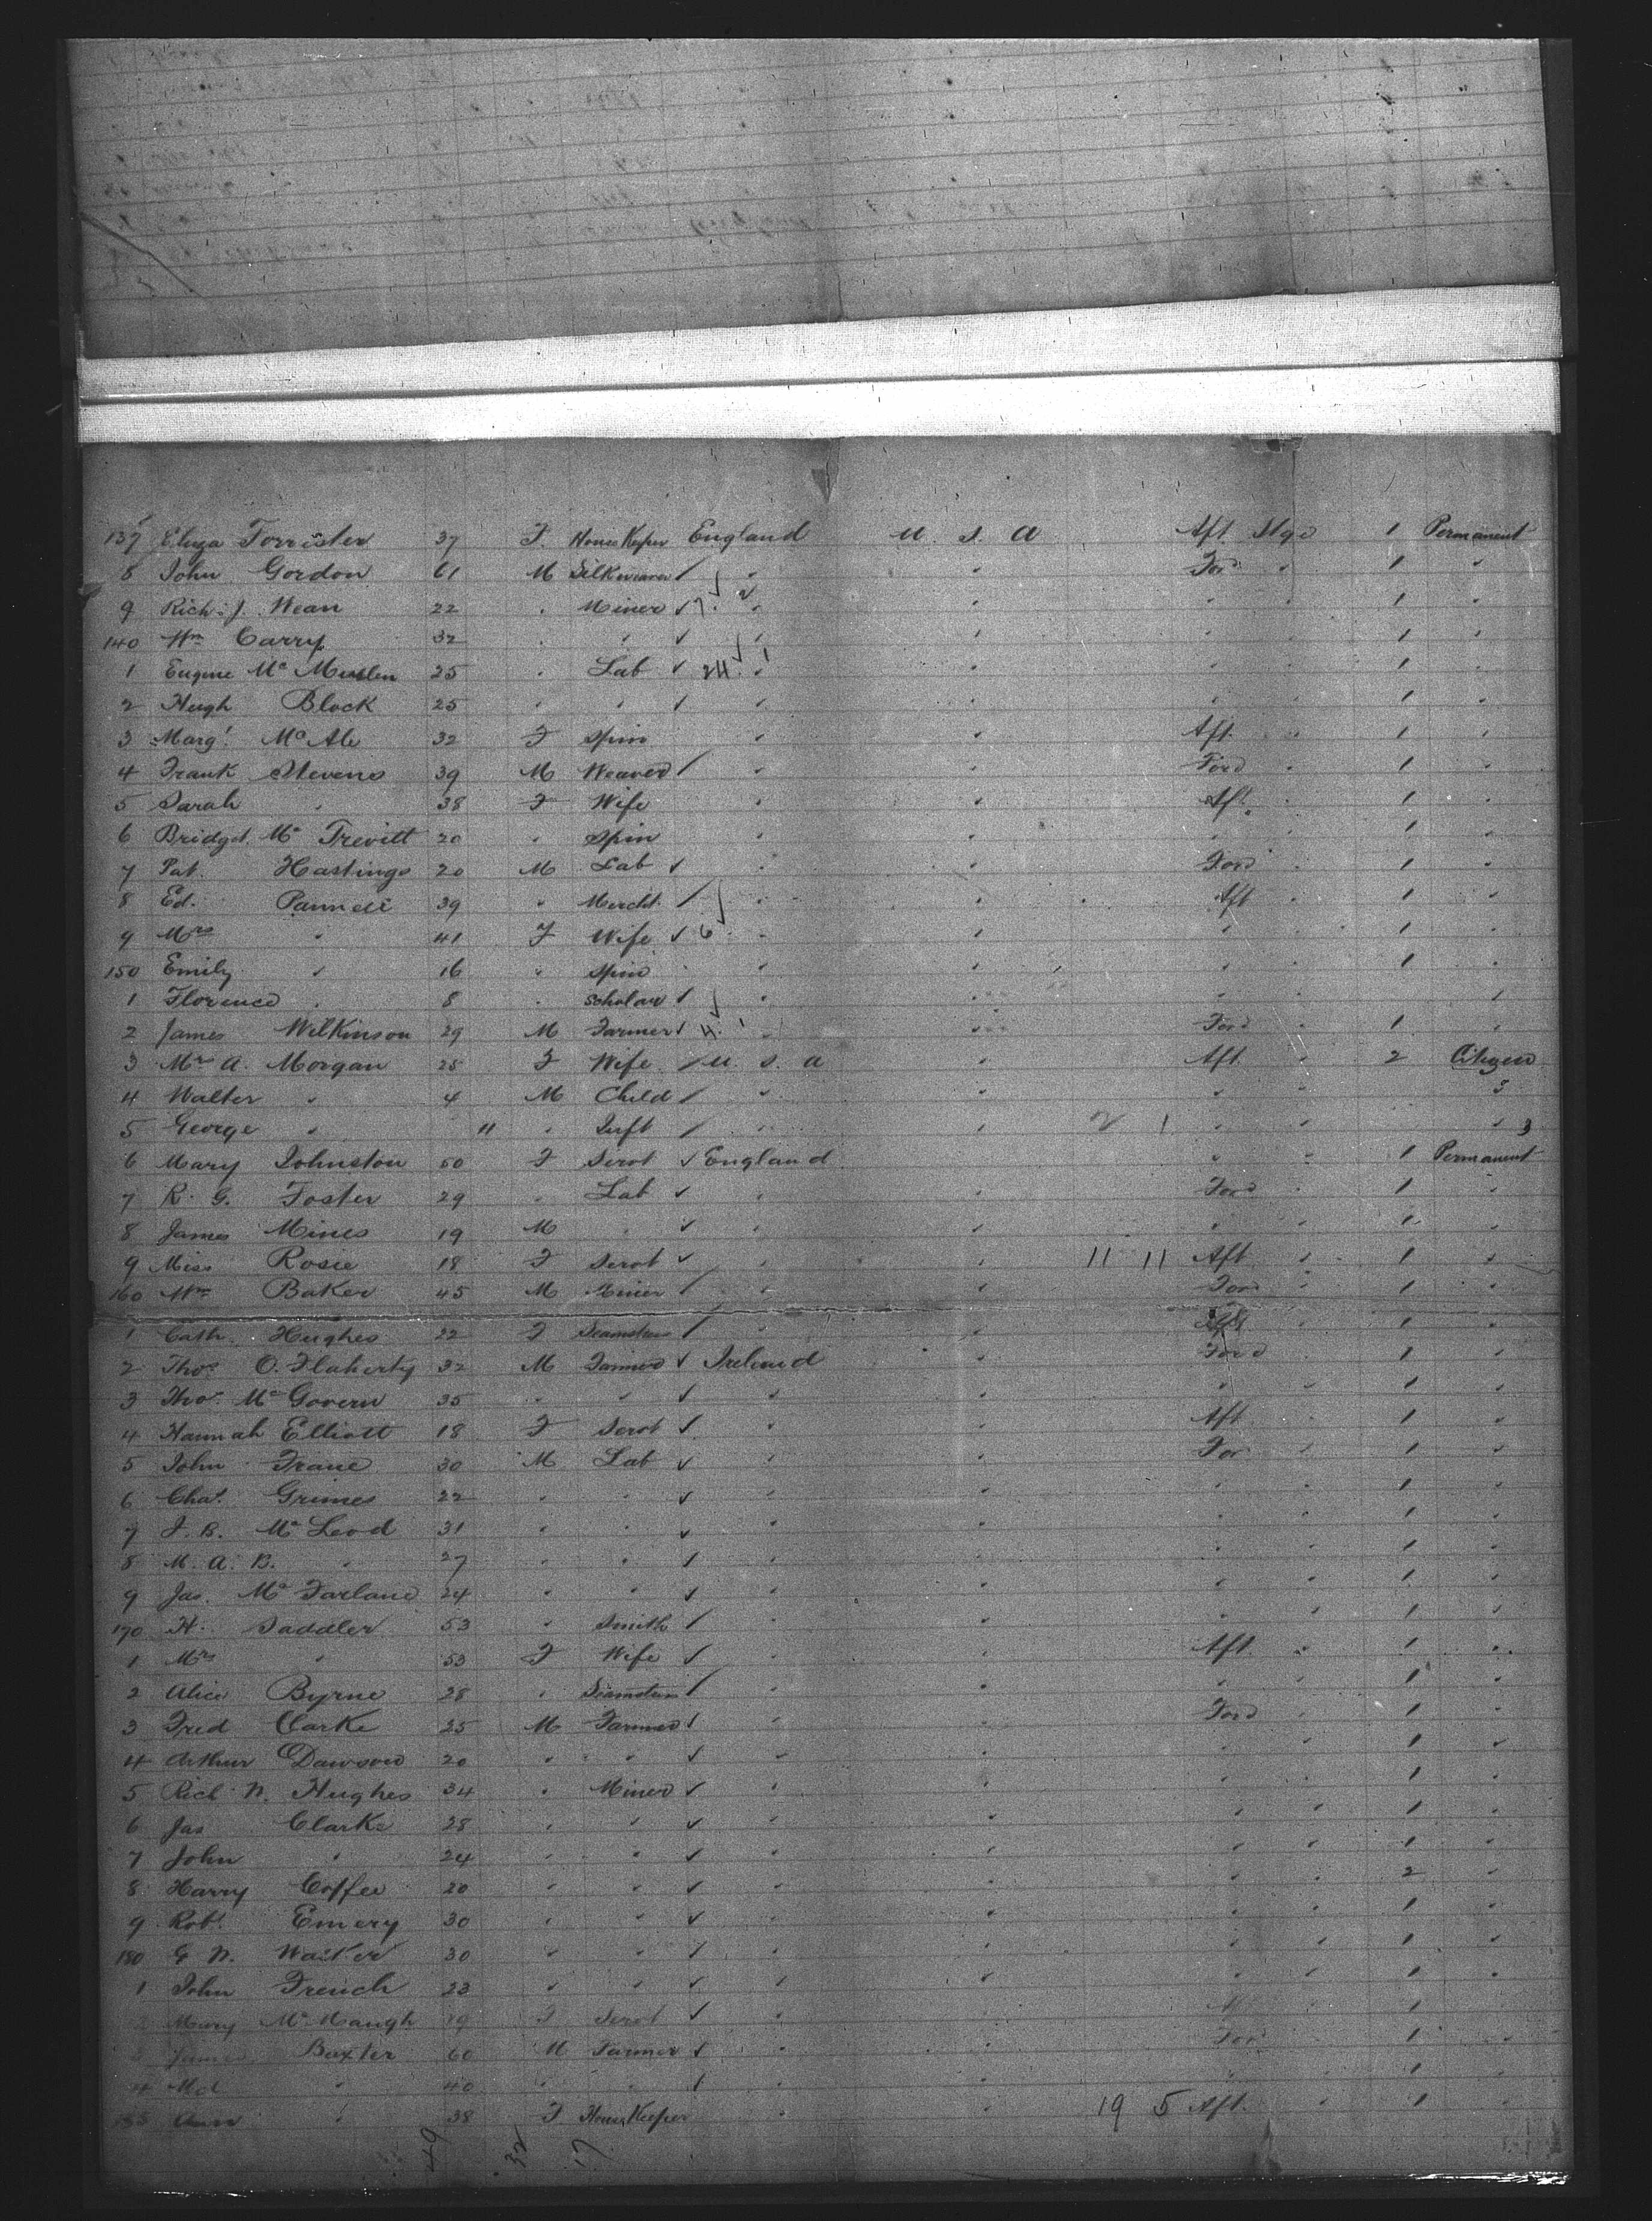 137 Eliza Forrister 37 F. House Keeper England U. S. A Aft Stge 1 Permanent
8 John Gordon 61 M Silkweaver / " " Ford " 1 "
9 Rich: J. Wean 22 " Miner ✓ 7. 2 " " " " 1 "
140 Wm Carry 32 " " ✓ " " " " 1 "
1 Eugene Mc Mullen 25 " Lab ✓ 24. 1 " " " " 1 "
2 Hugh Block 25 " " / " " " " 1 "
3 Margt Mc Ale 32 F Spin " " Aft. " 1 "
4 Frank Stevens 39 M Weaver / " " Ford " 1 "
5 Sarah " 38 F Wife " " Aft. " 1 "
6 Bridget Mc Trevitt 20 " Spin " " " " 1 "
7 Pat. Hastings 20 M Lab ✓ " " Ford " 1 "
8 Ed. 39 " Mercht. / " " Aft " 1 "
9 Mrs " 41 F Wife ✓ 6 " " " " 1 "
150 Emily " 16 " Spin " " " " 1 "
1 Florence " 8 " Scholar / " " " " "
2 James Wilkinson 29 M Farmer / 4. 1 " " Ford " 1 "
3 Mrs A. Morgan 28 F Wife / U. S. A " Aft. " 2 Citizen
4 Walter " 4 M Child / " " " " 3
5 George " 11 " Inft / " " 2 1 " " " 3
6 Mary Johnston 50 F Servt ✓ England " " 1 Permanent
7 R. G. Foster 29 " Lab ✓ " " Ford " 1 "
8 James Mines 19 M " ✓ " " " " 1 "
9 Miss Rosie 18 F Servt ✓ " " 11 11 Aft " 1 "
160 Wm Baker 45 M Miner / " " Ford " 1 "
1 Cath. Hughes 22 F Seamstress / " " Aft " 1 "
2 Thos O. Flaherty 32 M Farmer ✓ Ireland " Ford " 1 "
3 Thos Mc Govern 35 " " ✓ " " " " 1 "
4 Hannah Elliott 18 F Servt ✓ " " Aft " 1 "
5 John Frane 30 M Lab ✓ " " For " 1 "
6 Chas. Grimes 22 " " ✓ " " " " 1 "
7 J. B. Mc Leod 31 " " ✓ " " " " 1 "
8 M. A. B. " 27 " " / " " " " 1 "
9 Jas. Mc Farland 24 " " ✓ " " " " 1 "
170 H. Saddler 53 " Smith / " " " " 1 "
1 Mrs " 53 F Wife ✓ " " Aft. " 1 "
2 Alice Byrne 28 " Seamstress / " " " " 1 "
3 Fred Clarke 25 M Farmer / " " Ford " 1 "
4 Arthur Dawson 20 " " ✓ " " " " 1 "
5 Rich N. Hughes 34 " Miner ✓ " " " " 1 "
6 Jas Clarke 28 " " ✓ " " " " 1 "
7 John " 24 " " ✓ " " " " 1 "
8 Harry Coffee 20 " " ✓ " " " " 2 "
9 Robt. Emery 30 " " ✓ " " " " 1 "
180 G N. Walker 30 " " / " " " " 1 "
1 John French 23 " " ✓ " " " " 1 "
2 Mary Mc 19 F Servt ✓ " " Aft " 1 "
3 James Baxter 60 M Farmer ✓ " " Ford " 1 "
4 " 40 " " / " " " " 1 "
185 Ann " 38 F House Keeper " " 19 5 Aft. " 1 "
49 32 17